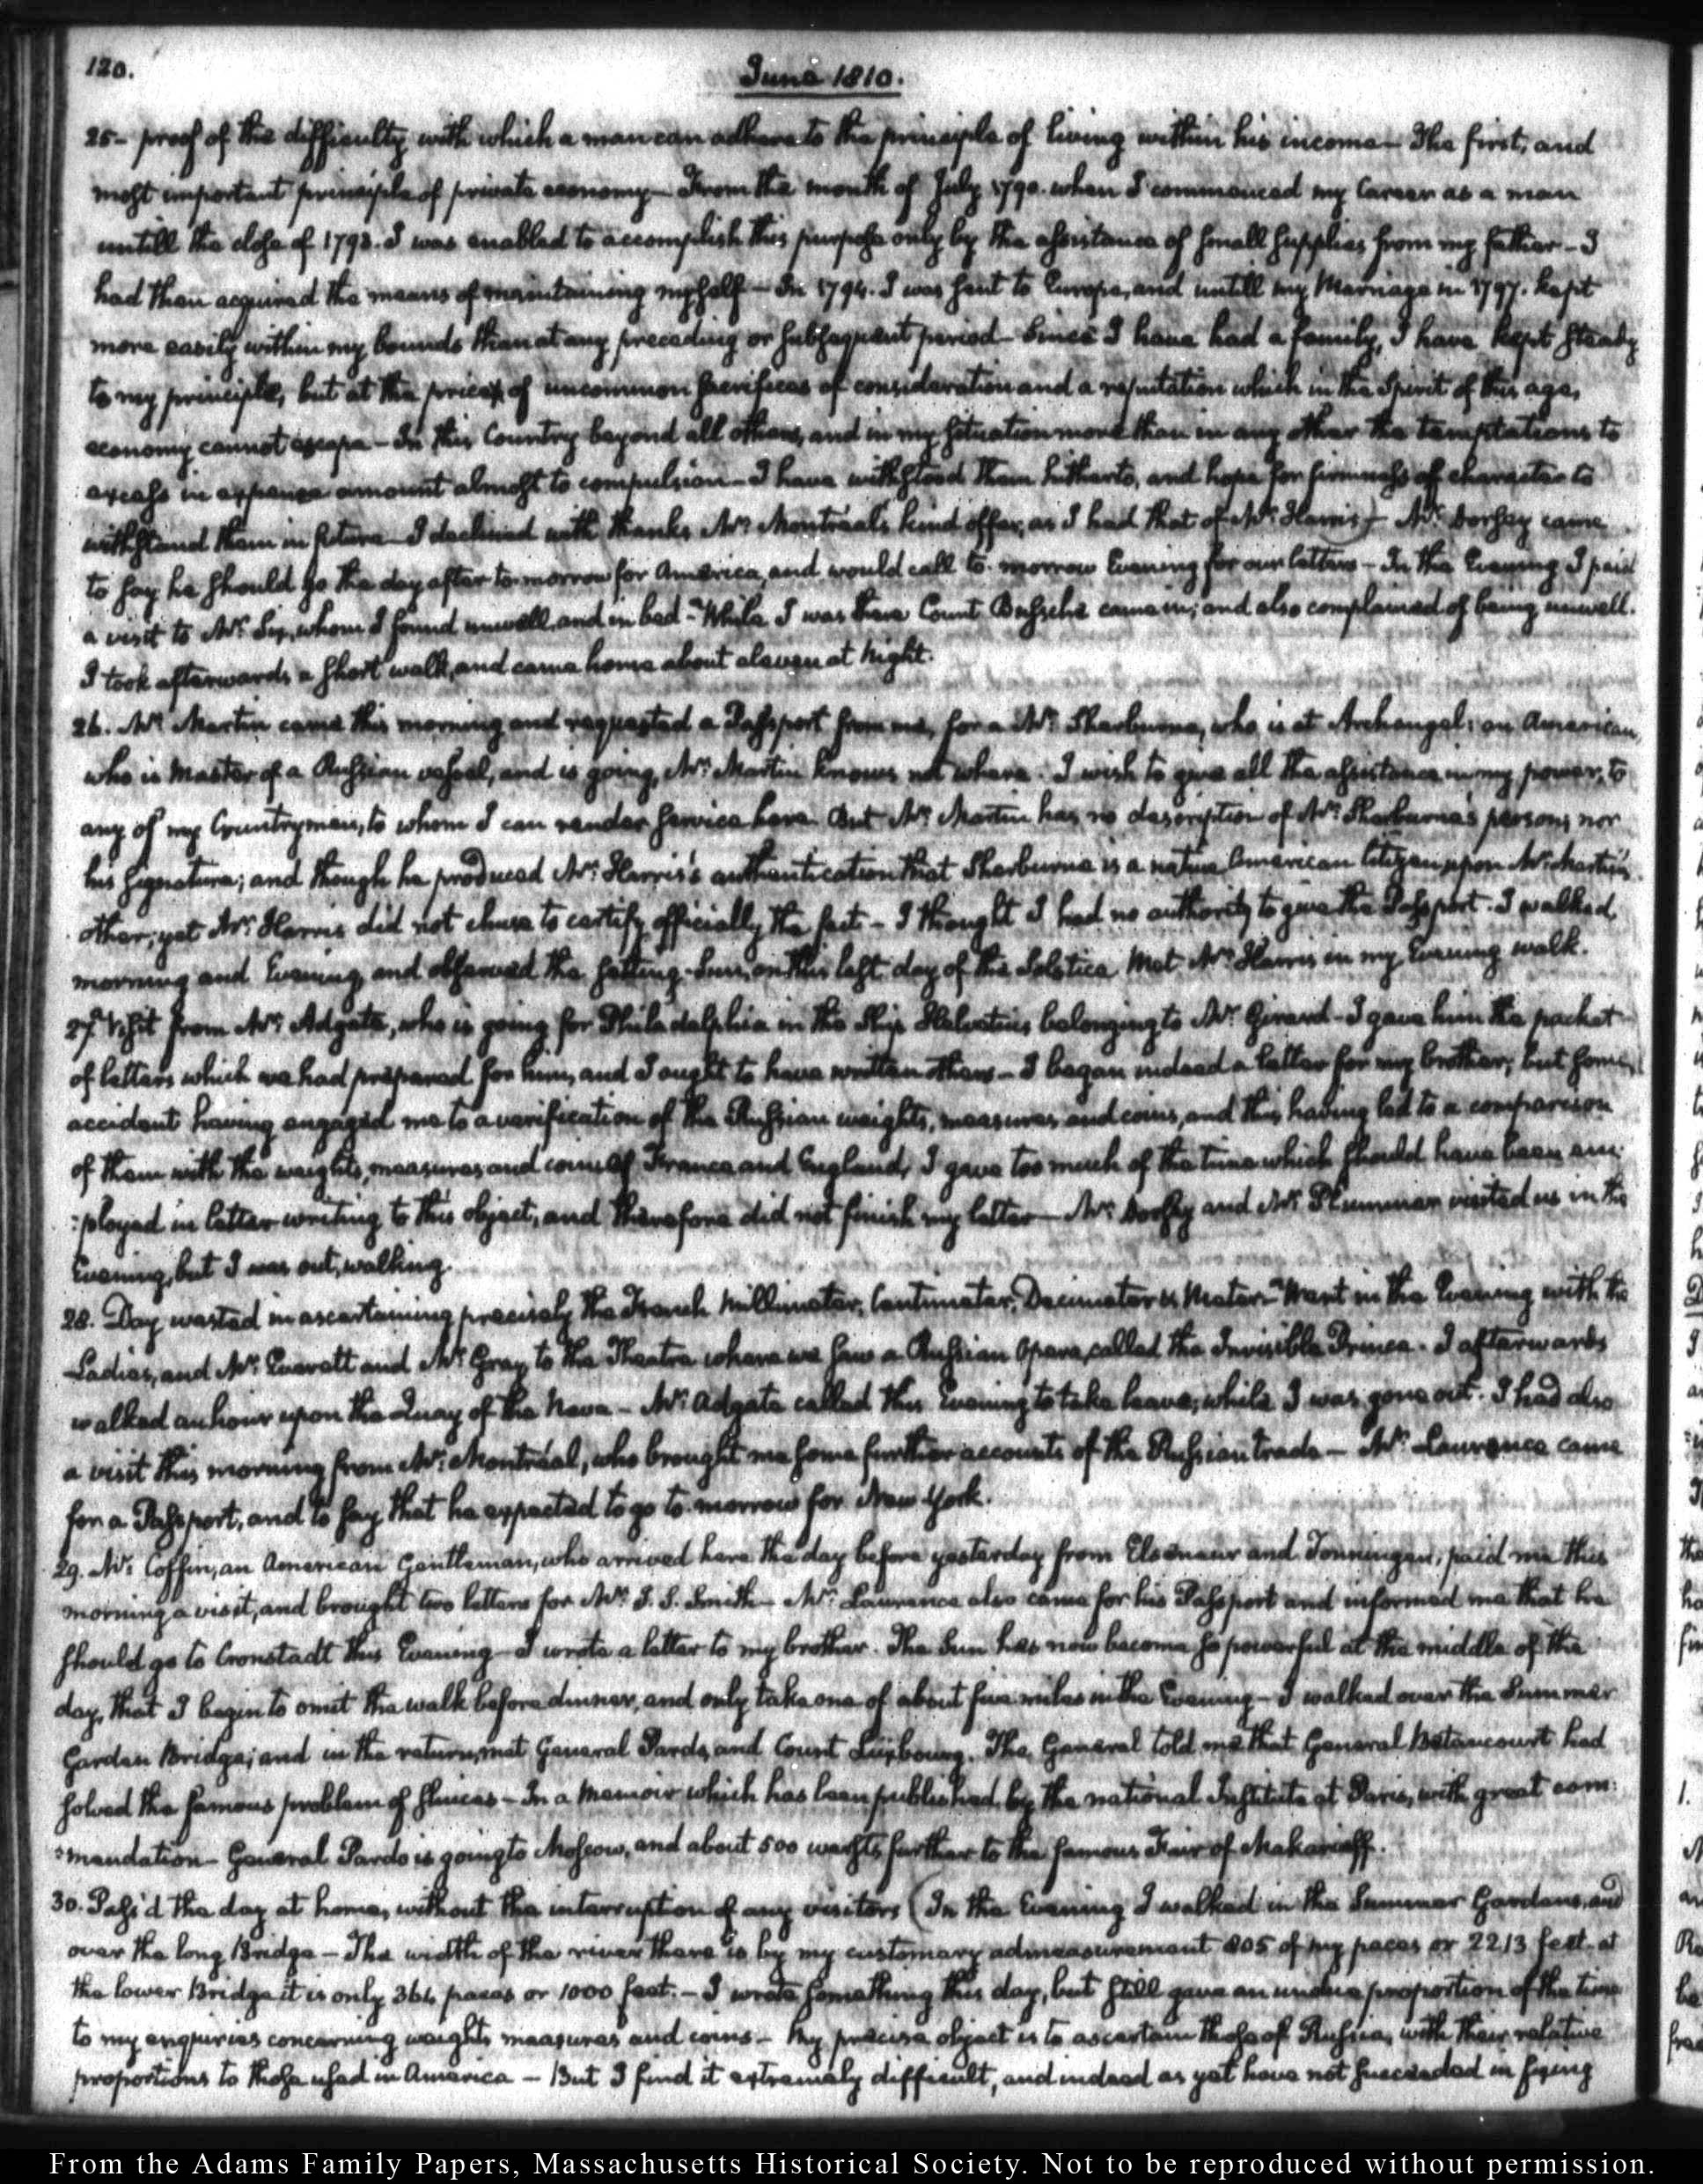 120.
June 1810.
25- proof of the difficulty with which a man can adhere to the principle of living within his income— The first, and
most important principle of private economy— From the month of July 1790. when I commenced my Career as a man
untill the close of 1793. I was enabled to accomplish this purpose only by the assistance of small supplies from my father— I
had then acquired the means of maintaining myself— In 1794. I was sent to Europe, and untill my Marriage in 1797. kept
more easily within my bounds than at any preceding or subsequent period— Since I have had a family, I have kept steady
to my principle, but at the price of uncommon sacrifices of consideration and a reputation which in the Spirit of this age,
economy cannot escape— In this Country beyond all others, and in my situation more than in any other the temptations to
excess in expence amount almost to compulsion— I have withstood them hitherto, and hope for firmness of character to
withstand them in future— I declined with thanks Mr: Montréal's kind offer, as I had that of Mr: Harris— Mr: Dorsey came
to say he should go the day after to-morrow for America, and would call to-morrow Evening for our letters— In the Evening I paid
a visit to Mr: Six, whom I found unwell, and in bed— While I was there Count Bussche came in; and also complained of being unwell.
I took afterwards a short walk, and came home about eleven at Night.
26. Mr: Martin came this morning and requested a Passport from me, for a Mr: Sherburne, who is at Archangel: an American,
who is Master of a Russian vessel, and is going, Mr: Martin knows not where. I wish to give all the assistance in my power, to
any of my Countrymen, to whom I can render service here. But Mr: Martin has no description of Mr: Sherburne's person, nor
his signature; and though he produced Mr: Harris's authentication that Sherburne is a native American Citizen, upon Mr: Martin's
other; yet Mr: Harris did not chuse to certify officially the fact— I thought I had no authority to give the Passport. I walked
morning and Evening, and observed the setting-Sun, on this last day of the Solstice. Met Mr: Harris in my Evening walk.
27. Visit from Mr: Adgate, who is going for Philadelphia in the Ship Helvetius, belonging to Mr: Girard— I gave him the packet
of letters which we had prepared for him, and I ought to have written others— I began indeed a letter for my brother; but some
accident having engaged me to a verification of the Russian weights, measures and coins, and this having led to a comparison
of them with the weights, measures and coins of France and England, I gave too much of the time which should have been em-
:ployed in letter-writing to this object, and therefore did not finish my letter— Mr: Dorsey and Mr: Plummer visited us in the
Evening, but I was out, walking.
28. Day wasted in ascertaining precisely the French Millimeter, Centimeter, Decimeter & Meter— Went in the Evening with the
Ladies, and Mr: Everett and Mr: Gray to the Theatre where we saw a Russian Opera, called the Invisible Prince. I afterwards
walked an hour upon the Quay of the Neva— Mr: Adgate called this Evening to take leave; while I was gone out. I had also
a visit this morning from Mr: Montréal, who brought me some further accounts of the Russian trade— Mr: Lawrence came
for a Passport, and to say that he expected to go to-morrow for New-York.
29. Mr: Coffin, an American Gentleman, who arrived here the day before yesterday from Elseneur and Tonningen, paid me this
morning a visit, and brought two letters for Mr: J. S. Smith— Mr: Lawrence also came for his Passport and informed me that he
should go to Cronstadt this Evening— I wrote a letter to my brother. The Sun has now become so powerful at the middle of the
day, that I begin to omit the walk before dinner, and only take one of about five miles in the Evening— I walked over the Summer
Garden Bridge; and in the return, met General Pardo, and Count Luxbourg. The General told me that General Betancourt had
solved the famous problem of sluices— In a Memoir which has been published by the national Institute at Paris, with great com-
:mendation— General Pardo is going to Moscow, and about 500 wersts further to the famous Fair of Makarieff.
30. Pass'd the day at home, without the interruption of any visitors (In the Evening I walked in the Summer Gardens, and
over the long Bridge— The width of the river there is by my customary admeasurement 805 of my paces or 2213 feet. at
the lower Bridge it is only 364 paces or 1000 feet.— I wrote something this day, but still gave an undue proportion of the time
to my enquiries concerning weights measures and coins— My precise object is to ascertain those of Russia, with their relative
proportions to those used in America— But I find it extremely difficult, and indeed as yet have not succeeded in fixing
From the Adams Family Papers, Massachusetts Historical Society. Not to be reproduced without permission.